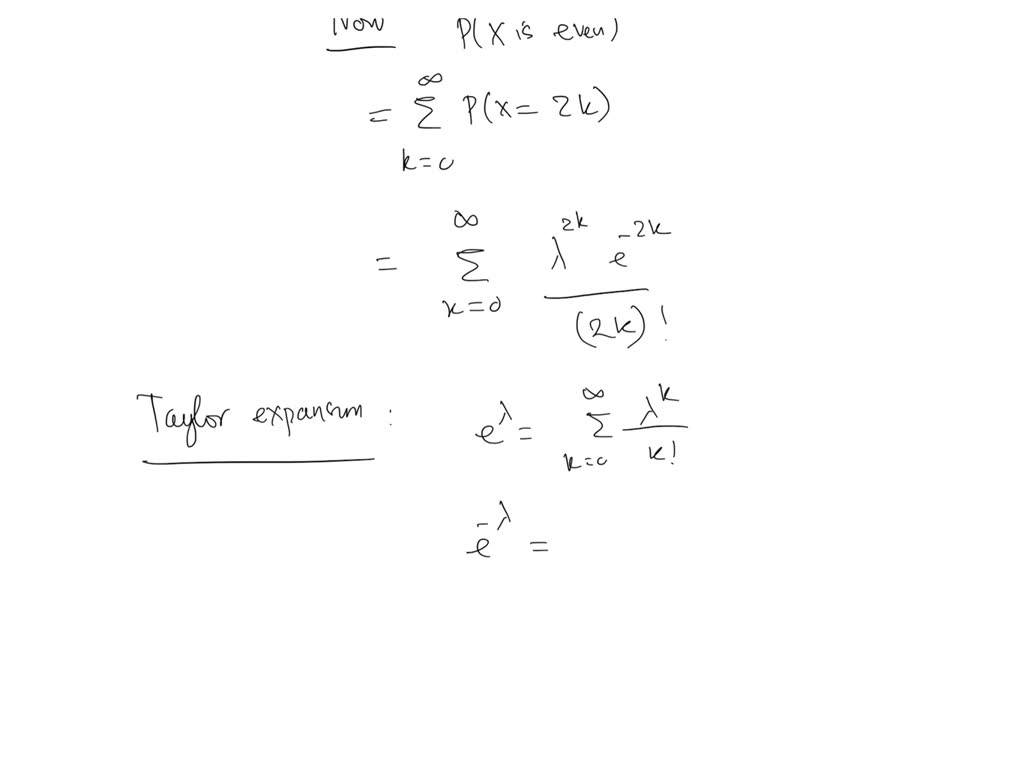 Now P(X is even)
= ∑_{k=0}^{∞} P(X = 2k)
= ∑_{k=0}^{∞} λ^{2k} e^{-2k} / (2k)!
Taylor expansion : e^{λ} = ∑_{k=0}^{∞} λ^{k} / k!
e^{-λ} =